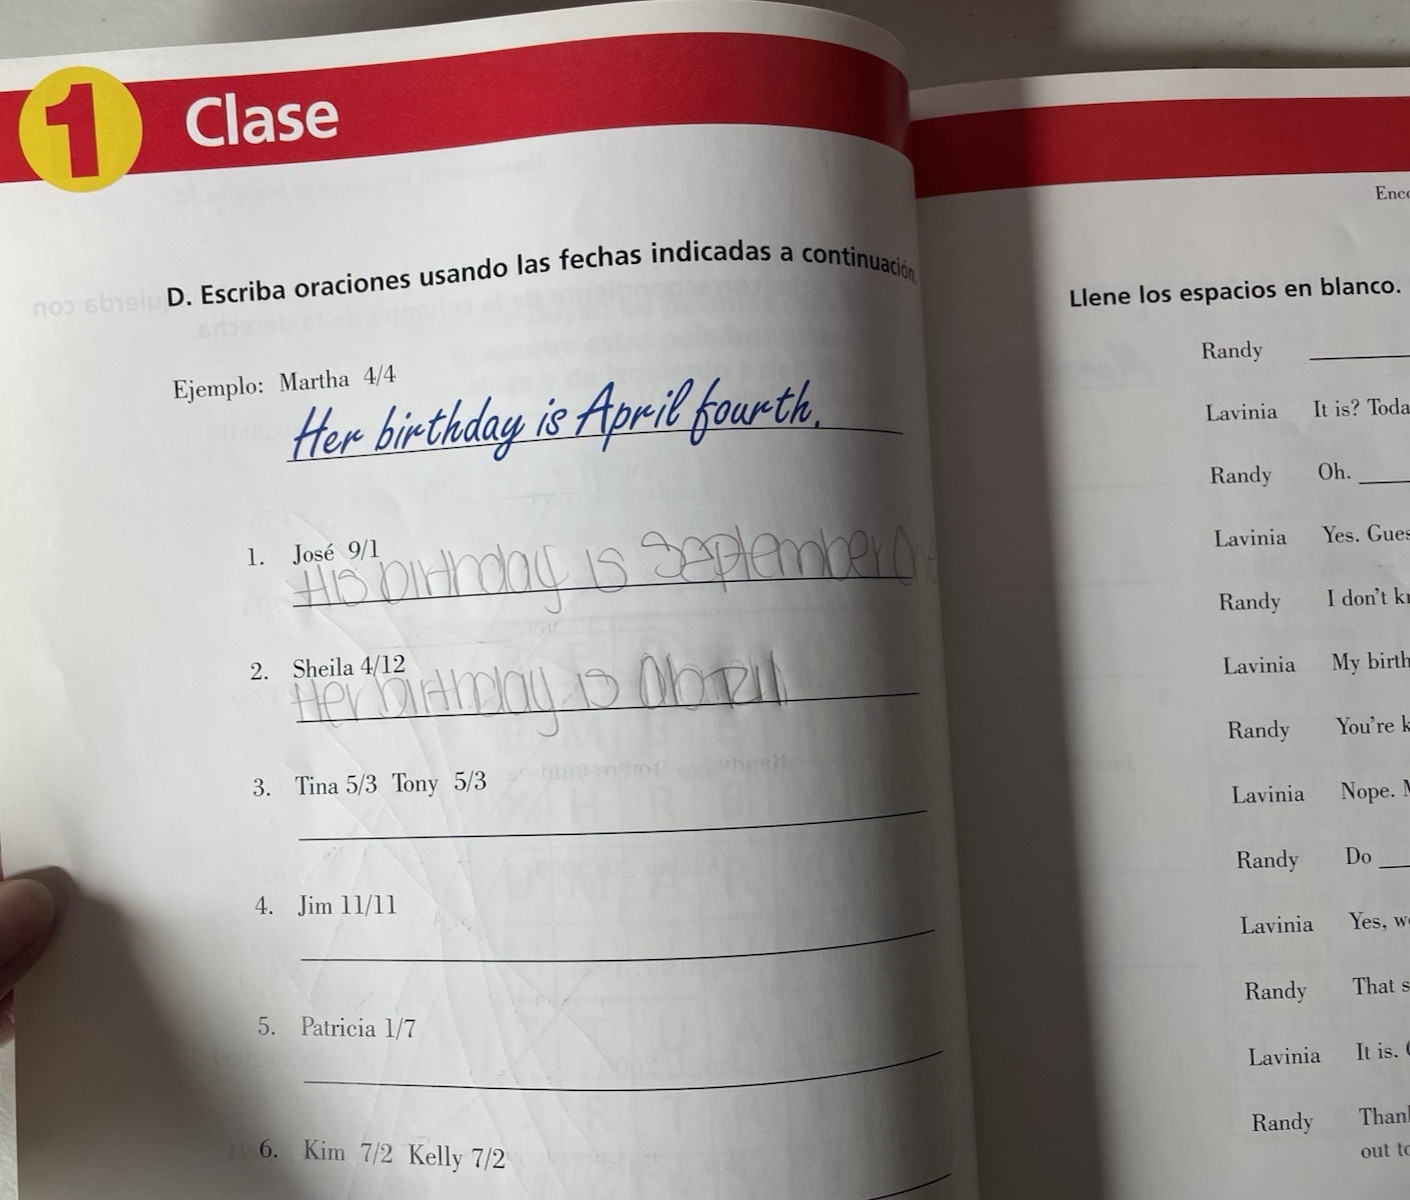 1 Clase
D. Escriba oraciones usando las fechas indicadas a continuación.
Ejemplo: Martha 4/4
Her birthday is April fourth.
1. José 9/1
His birthday is September One
2. Sheila 4/12
Her birthday is Abril
3. Tina 5/3 Tony 5/3
4. Jim 11/11
5. Patricia 1/7
6. Kim 7/2 Kelly 7/2
Llene los espacios en blanco.
Randy
Lavinia It is? Toda
Randy Oh.
Lavinia Yes. Gues
Randy I don't k
Lavinia My birth
Randy You're k
Lavinia Nope.
Randy Do
Lavinia Yes, w
Randy That s
Lavinia It is.
Randy Than
out to